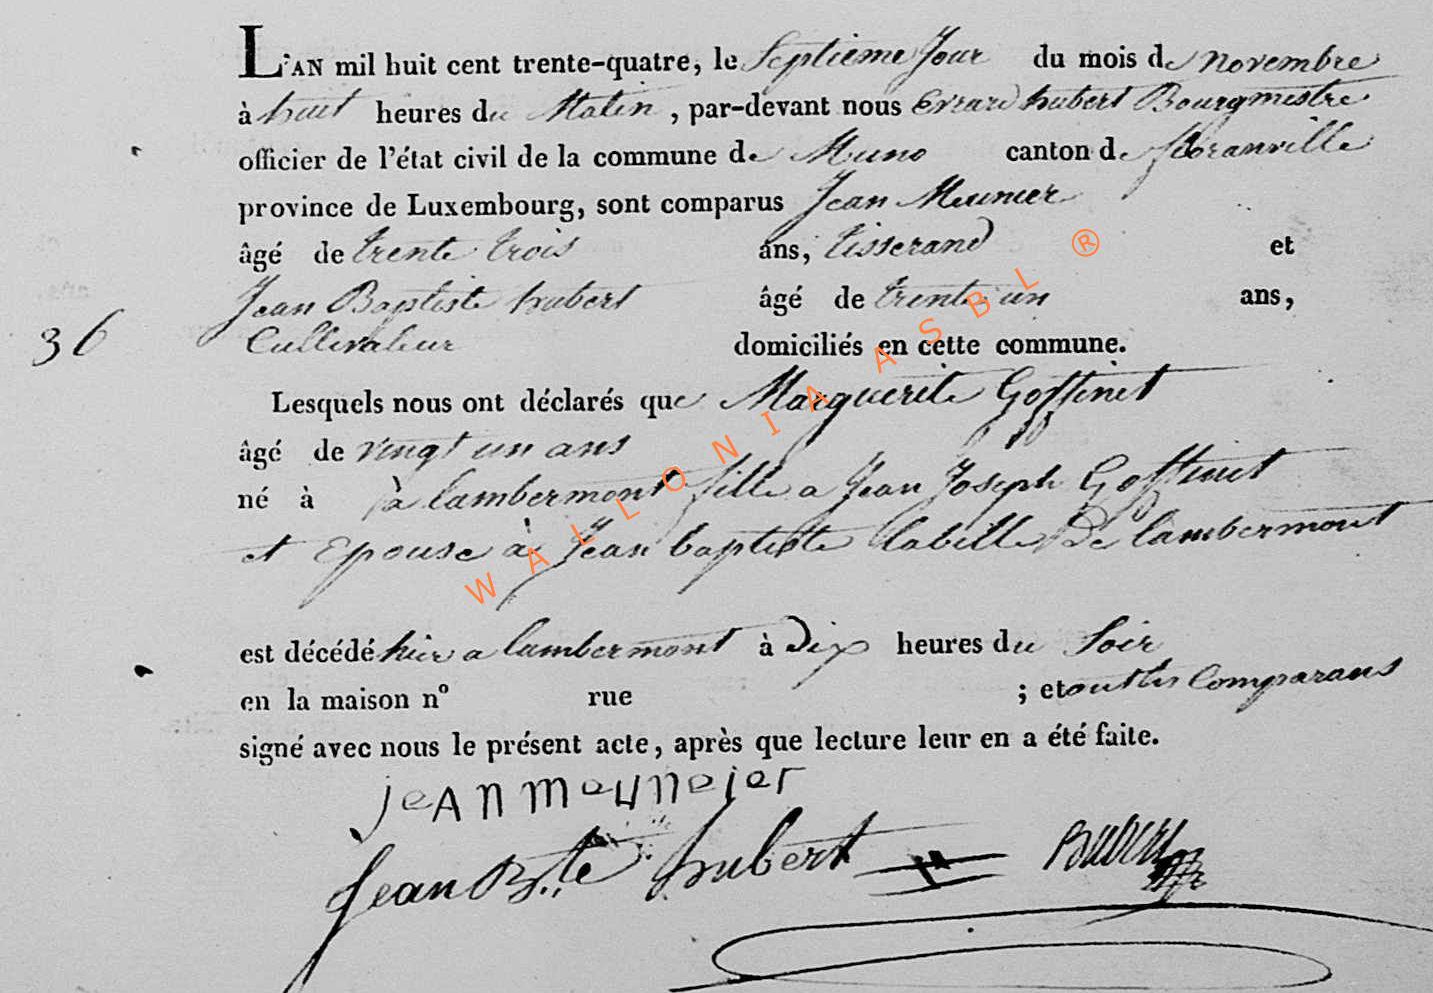 L'AN mil huit cent trente-quatre, le Septieme Jour du mois de novembre
à huit heures du Matin, par-devant nous Evrard hubert Bourgmestre
officier de l'état civil de la commune de Muno canton de floranville
province de Luxembourg, sont comparus Jean Meunier
âgé de trente trois ans, tisserand et
Jean Baptiste hubert âgé de trente un ans,
36 Cultivateur domiciliés en cette commune.
Lesquels nous ont déclarés que Marguerite Goffinet
âgé de vingt un ans
né à à lambermont fille a Jean Joseph Goffinet
et Epouse à Jean baptiste labille De lambermont
est décédé hier a lambermont à Dix heures du Soir
en la maison nº rue ; et ont les Comparans
signé avec nous le présent acte, après que lecture leur en a été faite.
jeAN meuneier
Jean Bte hubert
WALLONIA ASBL ®